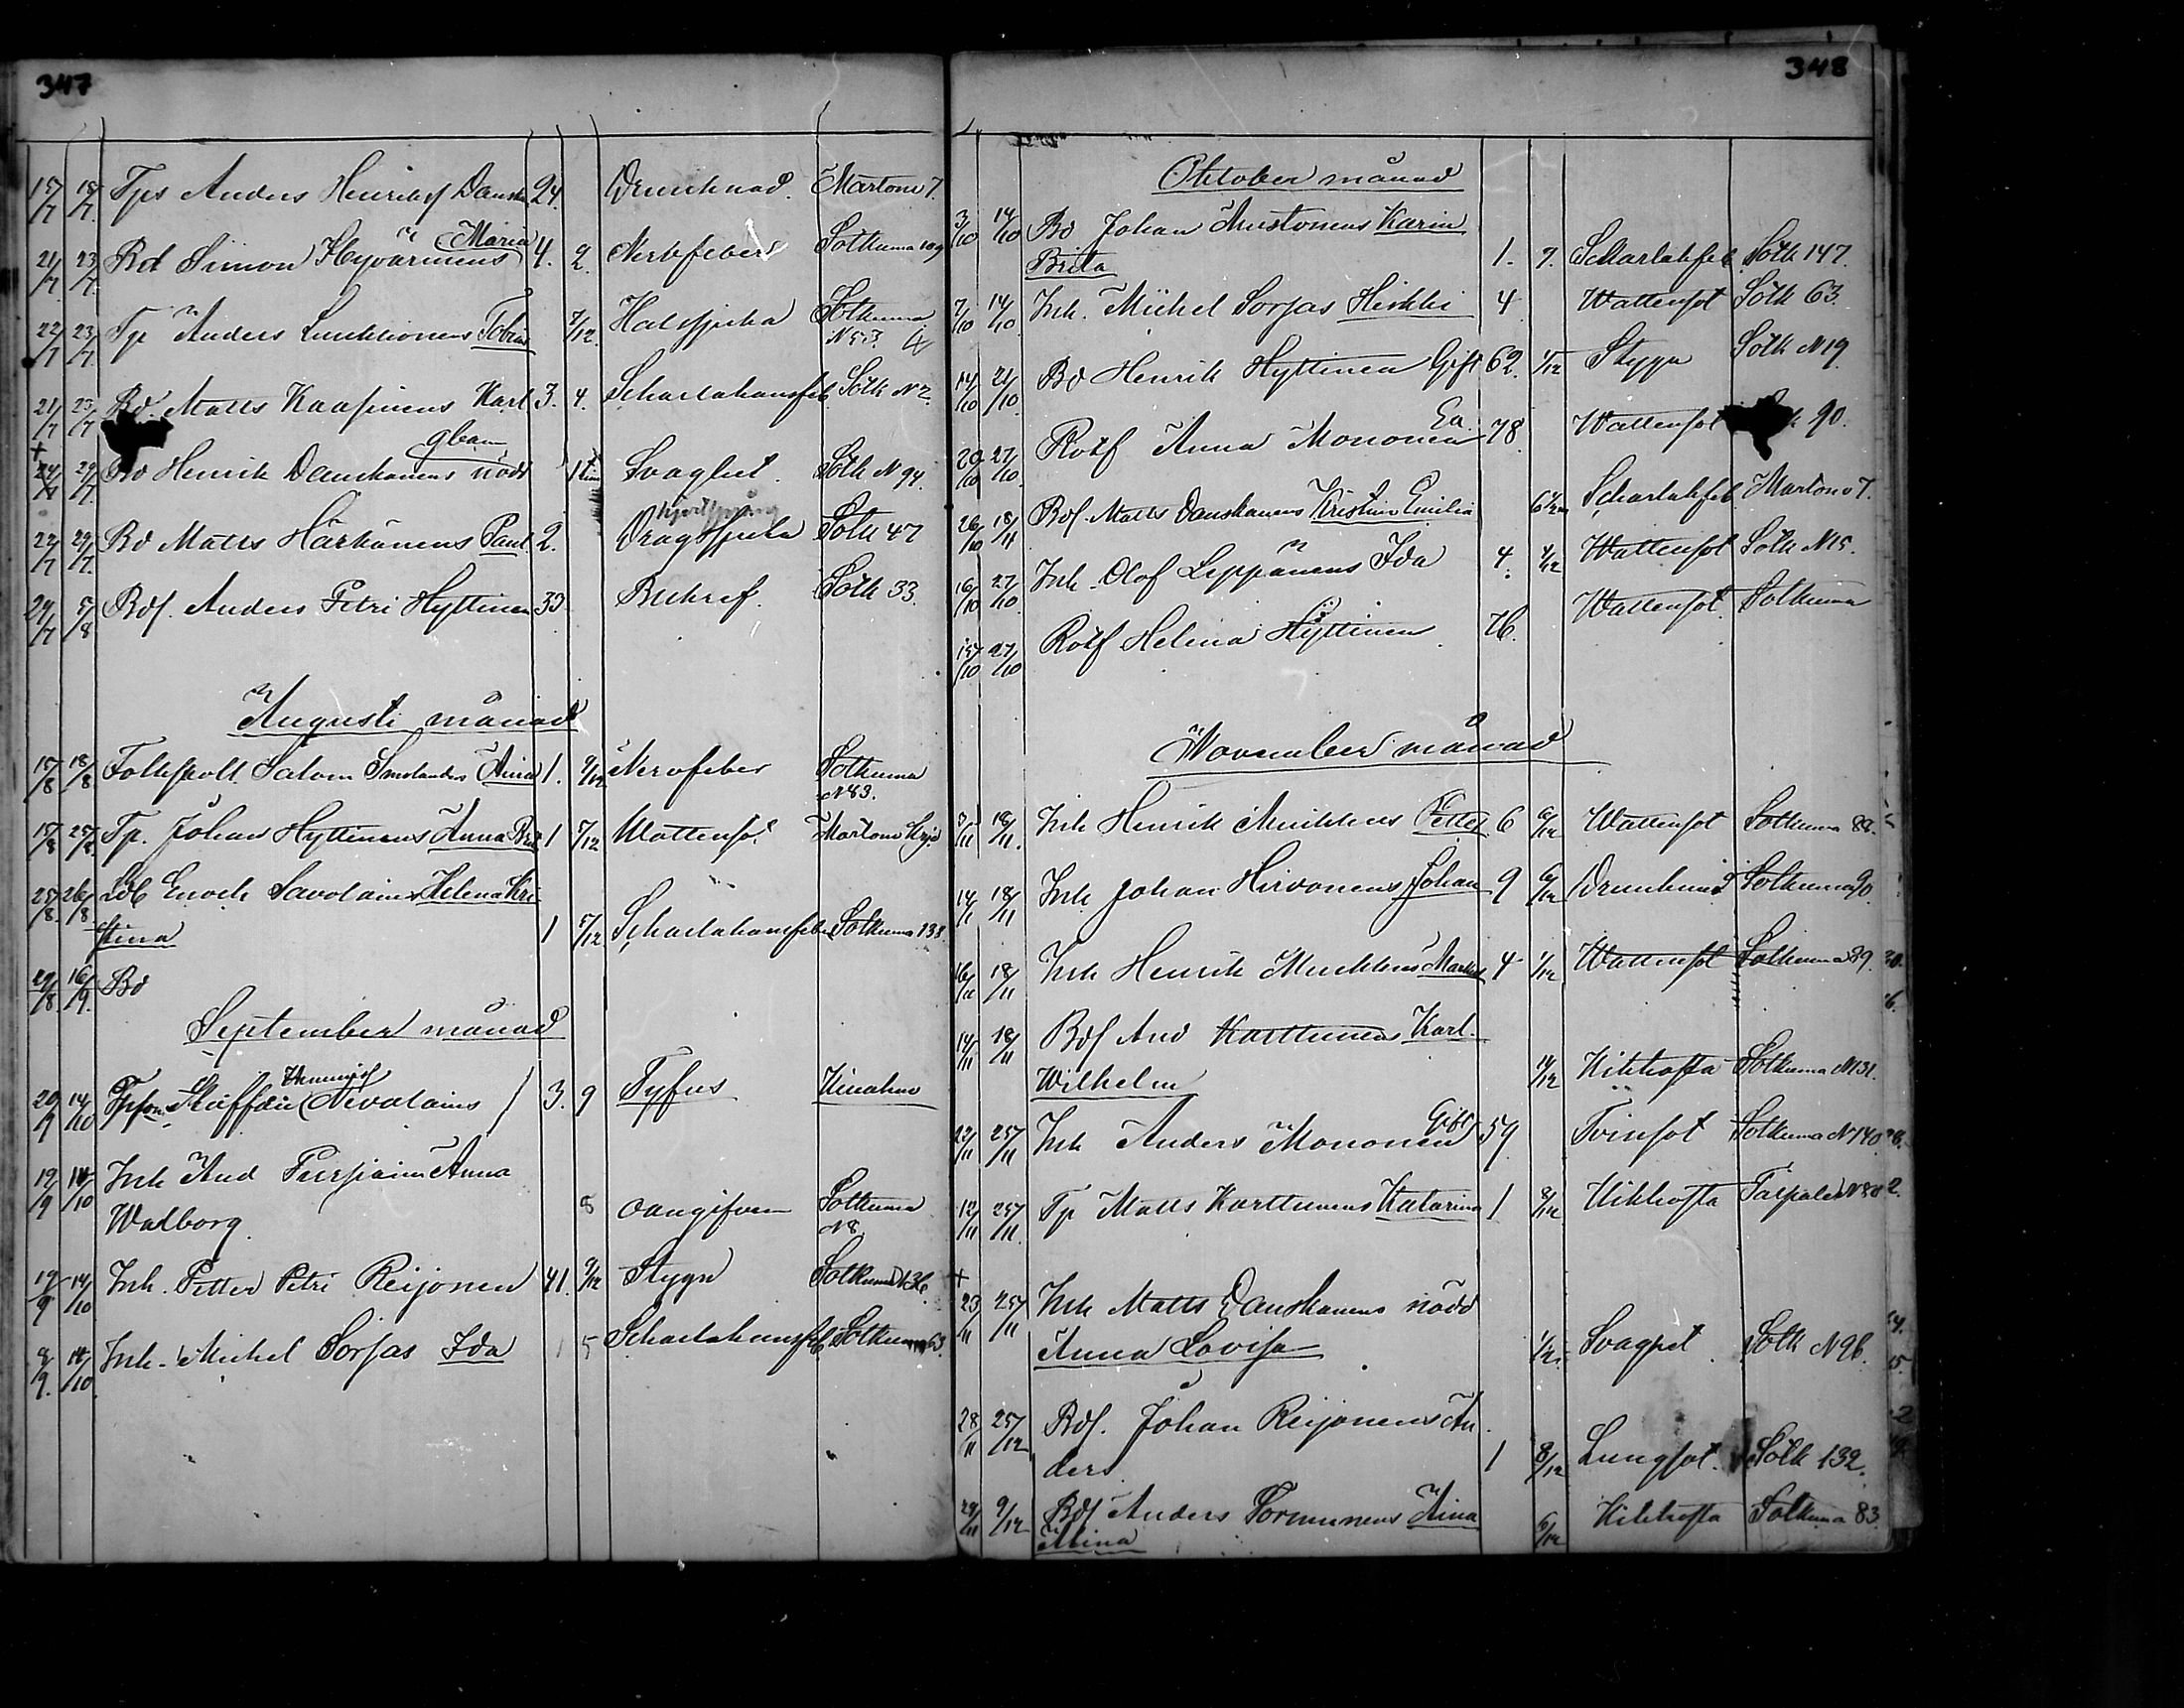 347
15/7 18/7 Tps Anders Henriks Dansk 24. Drunknad. Martono 7.
Maria
21/7 23/7 Bd Simon Hyvärinens 4. 2. Nervfeber Sotkuma 109
22/7 23/7 Tp Anders Turkkonens Tobias 7/12. Halssjuka Sotkuma
N 53.
21/7 23/7 Bd. Matts Kaasinens Karl 3. 4. Scharlakansfeb Sotk N 2.
gbarn
+
24/7 29/7 Bd Henrik Danskanens nödd 1 tim Svaghet. Sotk N 94.
22/7 29/7 Bd Matts Härkönens Paul 2. Dragsjuka Sotk 47
29/7 5/8 Bdf. Anders Petri Hyttinen 33 Sotk 33.
Augusti månad
15/8 18/8 Folkskoll Salom Smolanders Aina 1. 9/12 Nervfeber Sotkuma
N 83.
15/8 25/8 Tp. Johan Hyttinens Anna Brit 1 5/12 Wattensot Martono
25/8 26/8 Enoch Savolains Helena Kri-
stina 1 5/12 Scharlakansfeber Sotkuma 138.
29/8 16/9 Bd
September månad
20/9 14/10 Staffan Nevalains 3. 9 Tyfus Kinahmo
19/9 14/10 Inh And Pursiains Anna
Walborg 8 oangifven Sotkuma
N 8.
19/9 14/10 Inh. Petter Petri Reijonen 41. 9/12 Stygn Sotkuma 136.
8/9. 14/10 Inh. Michel Sorsas Ida 5 Scharlakansfeb Sotkuma 63.
348
Oktober månad
3/10 14/10 Bd Johan Mustonens Karin
Brita 1. 9. Scharlakfeb Sotk 147.
7/10 14/10 Inh. Michel Sorsas Heikki 4 Wattensot Sotk 63.
14/10 21/10 Bd Henrik Hyttinen Gift 62. 1/12 Stygn Sotk N 19.
Ea.
20/10 27/10 Rotf Anna Mononen 78. Wattensot 90.
26/10 18/11 Bdf. Matts Danskanens Kristina Emilia Scharlakfeb Martono 7.
16/10 27/10 Inh. Olof Leppänens Ida 4. 4/12 Wattensot Sotk N 15.
15/10 27/10 Rotf Helena Hyttinen 76. Wattensot. Sotkuma
November månad
18/11. Inh Henrik Mutkkens Petter 6 6/12 Wattensot Sotkuma 88.
18/11 Inh Johan Hirvonens Johan 9 6/12 Drunknad Sotkuma 90.
16/11 18/11 Inh Henrik Murkkens 4 1/12 Wattensot Sotkuma 89.
14/11 18/11 Bdf And Karttunens Karl-
Wilhelm 11/12 Kikhosta Sotkuma N 131.
Gift
22/11 25/11 Inh Anders Mononen 59. Tvinsot Sotkuma N 140
12/11 25/11. Tp Matts Karttunens Katarina 1 8/12 Kikhosta Taipale N 80
+
23/11 25/11 Inh Matts Danskanens nödd
Anna Lovisa 1/12. Svaghet Sotk N 96.
28/11 25/12 Bdf. Johan Reijonens An-
ders. 1 8/12 Lungsot. Sotk 132.
29/11 9/12 Bdf Anders Sormunens Aina
Mina 6/12 Kikhosta Sotkuma 83.